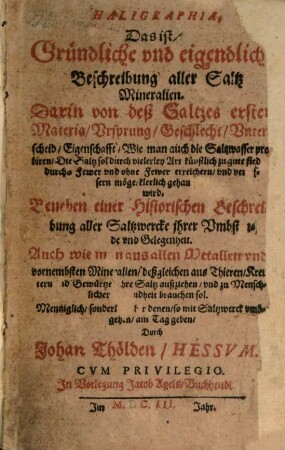 HALIGRAPHIA,
Das ist
Gründliche vnd eigendlich
Beschreibung aller Saltz
Mineralien.
Darin von deß Saltzes ersten
Materia/Vrsprung/Geschlecht/Vnter
scheid/Eigenschafft/Wie man auch die Saltzwasser pro
biren/Die Saltz sol durch vielerley Art künstlich zu gute sied
durchs Fewer vnd ohne Fewer erreichern/vnd ver sern möge/klerlich gethan
wird.
Beneben einer Historischen Beschrei
bung aller Saltzwercke ihrer Vmbst
de vnd Gelegenheit.
Auch wie m n aus allen Metallen vnd
vornembsten Mineralien/deßgleichen aus Thieren/Kreu
tern d Gewürtze hre Saltz außziehen/vnd zu Mensch
licher ndheit brauchen sol.
Menniglich/sonderl r denen/so mit Saltzwerck vmb
gehen/am Tag geben/
Durch
Johan Thölden/HESSVM.
CVM PRIVILEGIO.
In Vorlegung Jacob Apels/Buchhendl
Im M. C. III. Jahr.